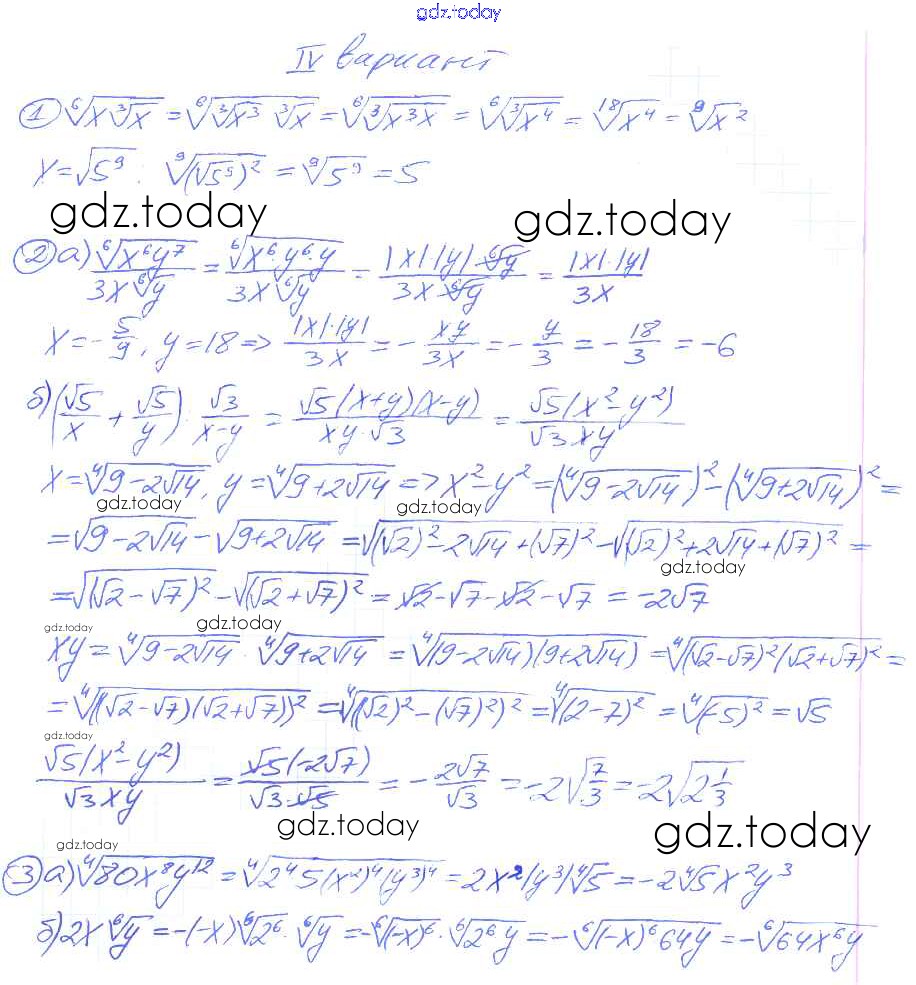 gdz.today
IV вариант
1) ⁶√(x∛x) = ⁶√(∛x³ ∛x) = ⁶√(∛(x³x)) = ⁶√(∛x⁴) = ¹⁸√x⁴ = ⁹√x²
x = √5⁹ : ⁹√((√5⁹)²) = ⁹√5⁹ = 5
gdz.today gdz.today
2) а) ⁶√(x⁶y⁷) / (3x ⁶√y) = ⁶√(x⁶·y⁶·y) / (3x ⁶√y) = |x|·|y| ⁶√y / (3x ⁶√y) = |x|·|y| / 3x
x = -5/9, y = 18 => |x|·|y| / 3x = - xy/3x = - y/3 = - 18/3 = -6
б) (√5/x + √5/y) : √3/(x-y) = √5(x+y)(x-y) / (xy·√3) = √5(x²-y²) / (√3xy)
x = ⁴√(9-2√14), y = ⁴√(9+2√14) => x²-y² = (⁴√(9-2√14))² - (⁴√(9+2√14))² =
gdz.today gdz.today
= √(9-2√14) - √(9+2√14) = √((√2)²-2√14+(√7)²) - √((√2)²+2√14+(√7)²) =
gdz.today
= √((√2-√7)²) - √((√2+√7)²) = √2-√7-√2-√7 = -2√7
gdz.today gdz.today
xy = ⁴√(9-2√14) · ⁴√(9+2√14) = ⁴√((9-2√14)(9+2√14)) = ⁴√((√2-√7)²(√2+√7)²) =
= ⁴√(((√2-√7)(√2+√7))²) = ⁴√(((√2)²-(√7)²)²) = ⁴√((2-7)²) = ⁴√((-5)²) = √5
gdz.today
√5(x²-y²) / (√3xy) = √5(-2√7) / (√3·√5) = - 2√7/√3 = -2√(7/3) = -2√(2 1/3)
gdz.today gdz.today gdz.today
3) а) ⁴√(80x⁸y¹²) = ⁴√(2⁴5(x²)⁴(y³)⁴) = 2x²|y³|⁴√5 = -2⁴√5x²y³
б) 2x ⁶√y = -(-x) ⁶√2⁶ · ⁶√y = -⁶√((-x)⁶) · ⁶√(2⁶y) = -⁶√((-x)⁶64y) = -⁶√(64x⁶y)